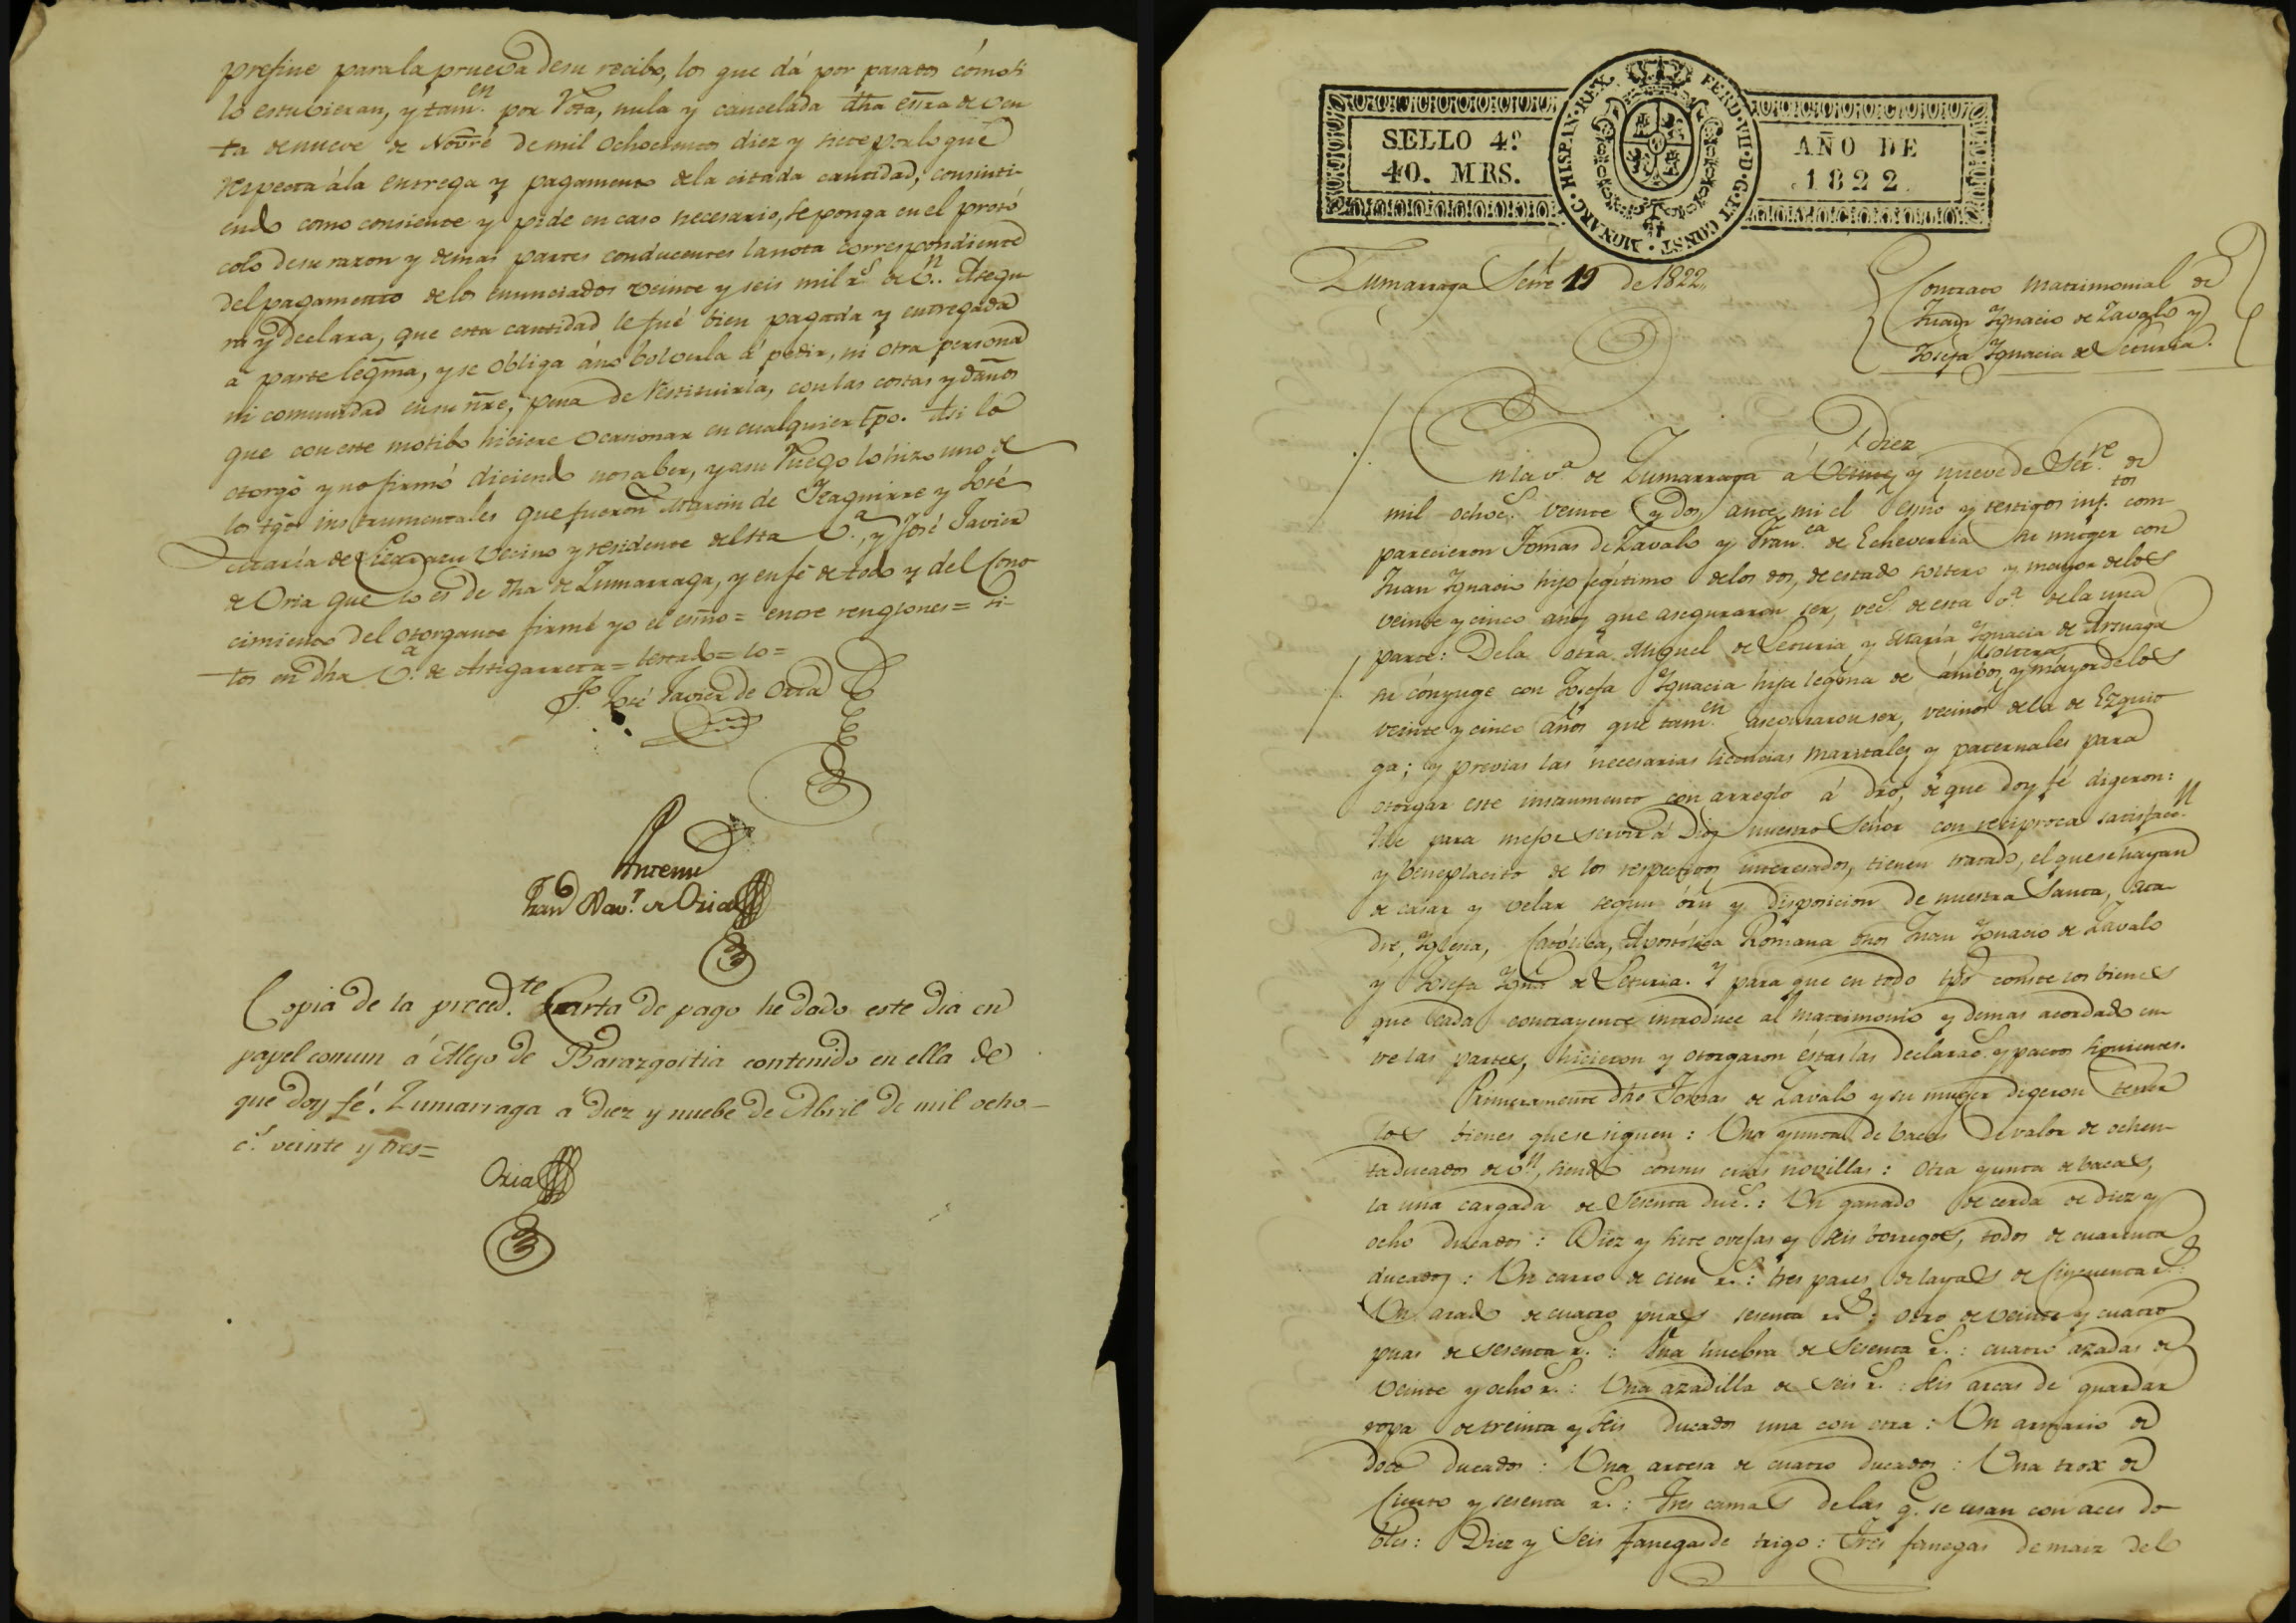 prefine para la prueva de su recibo, los que dá por pasados cómo si
lo estuvieran, y tam.en por rota, nula y cancelada dha esrra de ven
ta de nueve de Novre de mil ochocientos diez y siete por lo que
respecta á la entrega y pagamento de la citada cantidad, consinti-
endo como consiente y pide en caso necesario, se ponga en el proto
colo de su razon y demas partes conducentes la nota correspondiente
del pagamento de los enunciados veinte y seis mil r.s de v.n. Asegu
ra y declara, que esta cantidad le fué bien pagada y entregada
a parte legma, y se obliga á no bolverla á pedir, ni otra persona
ni comunidad en su nre, pena de restituirla, con las costas y daños
que con este motibo hiciere ocasionar en cualquier tpo. Asi lo
otorgó y no firmó diciendo no saber, y a su ruego lo hizo uno de
los tgos instrumentales que fueron Martin de Izaguirre y José
Maria de vecino y residente de esta v.a, y José Javier
de Oria que lo es de dha de Zumarraga, y en fé de todo y del cono
cimiento del otorgante firmé yo el esno = entre renglones = si-
tos en dha v.a de Astigarreta = testado = lo =
T.o José Javier de Oria
Antemi
Fran.co Xav.r de Oria
Copia de la preced.te Carta de pago he dado este dia en
papel comun á Alejo de Barazgoitia contenido en ella de
que doy fé. Zumarraga á diez y nuebe de Abril de mil ocho-
c.s veinte y tres=
Oria
SELLO 4º
40. MRS.
HISPAN·REX. FERD·VII·D·G·ET CONST·MONARC·
AÑO DE
1822.
Zumarraga Setre 19 de 1822.
Contrato Matrimonial de
Juan Ygnacio de Zavalo y
Josefa Ygnacia de Leturia.
diez
En la v.a de Zumarraga á veinte y nueve de Set.re de
mil ochoc.s veinte y dos ante mi el esno y testigos inf.tos com
parecieron Tomas de Zavalo y Fran.ca de Echeverria su muger con
Juan Ygnacio hijo legitimo de los dos, de estado soltero y mayor de los
veinte y cinco añs que aseguraron ser, vec.s de esta v.a de la una
parte: De la otra Miguel de Leturia y Maria Ygnacia de Arsuaga
soltera
su cónyuge con Josefa Ygnacia hija legma de ámbos, y mayor de los
veinte y cinco años que tam.en aseguraron ser, vecinos de la de Ezquio
ga; y previas las necesarias licencias maritales y paternales para
otorgar este instrumento con arreglo á dro, de que doy fé digeron:
Que para mejor servir á Dios nuestro Señor con reciproca satisfac.n
y beneplacito de los respectivos interesados, tienen tratado, el que se hayan
de casar y velar segun órn y disposicion de nuestra Santa, Ma
dre, Yglesia, Católica, Apostólica Romana dhos Juan Ygnacio de Zavalo
y Josefa Ygna de Leturia. Y para que en todo tpo conste los bienes
que cada contrayente introduce al Matrimonio y demas acordado en
tre las partes, hicieron y otorgaron éstas las declarac.s y pactos siguientes.
Primeramente dho Tomas de Zavalo y su muger digeron tener
los bienes que se siguen: Una yunta de bacas de valor de ochen
ta ducados de v.n, siendo con sus crias novillas: Otra yunta de bacas,
la una cargada de sesenta duc.s: Un ganado de cerda de diez y
ocho ducados: Diez y siete ovejas y seis borregos, todos de cuarenta
ducados: Un carro de cien r.s: tres pares de layas de cincuenta r.s:
Un arado de cuatro puas sesenta r.s: otro de veinte y cuatro
puas de sesenta r.s: Una huebra de sesenta r.s: cuatro azadas de
veinte y ocho r.s: Una azadilla de seis r.s: seis arcas de guardar
ropa de treinta y seis ducados una con otra: Un armario de
doce ducados: Una artesa de cuatro ducados: Una trox de
ciento y sesenta r.s: Tres camas de las q.e se usan con aces do
bles: Diez y seis fanegas de trigo: Tres fanegas de maiz del